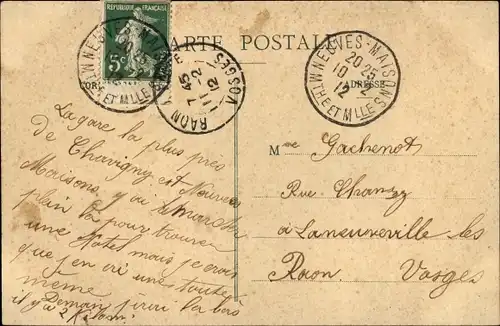 RÉPUBLIQUE FRANÇAISE
5c
CARTE POSTALE
NEUVES-MAISONS
MTHE ET MLLE
RAON
VOSGES
7 45
11-2
12
NEUVES-MAISONS
20 25
10-2
12
MTHE ET MLLE
ADRESSE
La gare la plus près
de Chavigny est Neuves
Maisons j'ai
plein la pour trouver
une Hôtel mais je crois
que j'en ai une toute à
même
Demain j'irai la bas
il y a 2 Kilom.
Mme Gachenot
Rue Chanzy
à Laneuveville les
Raon Vosges